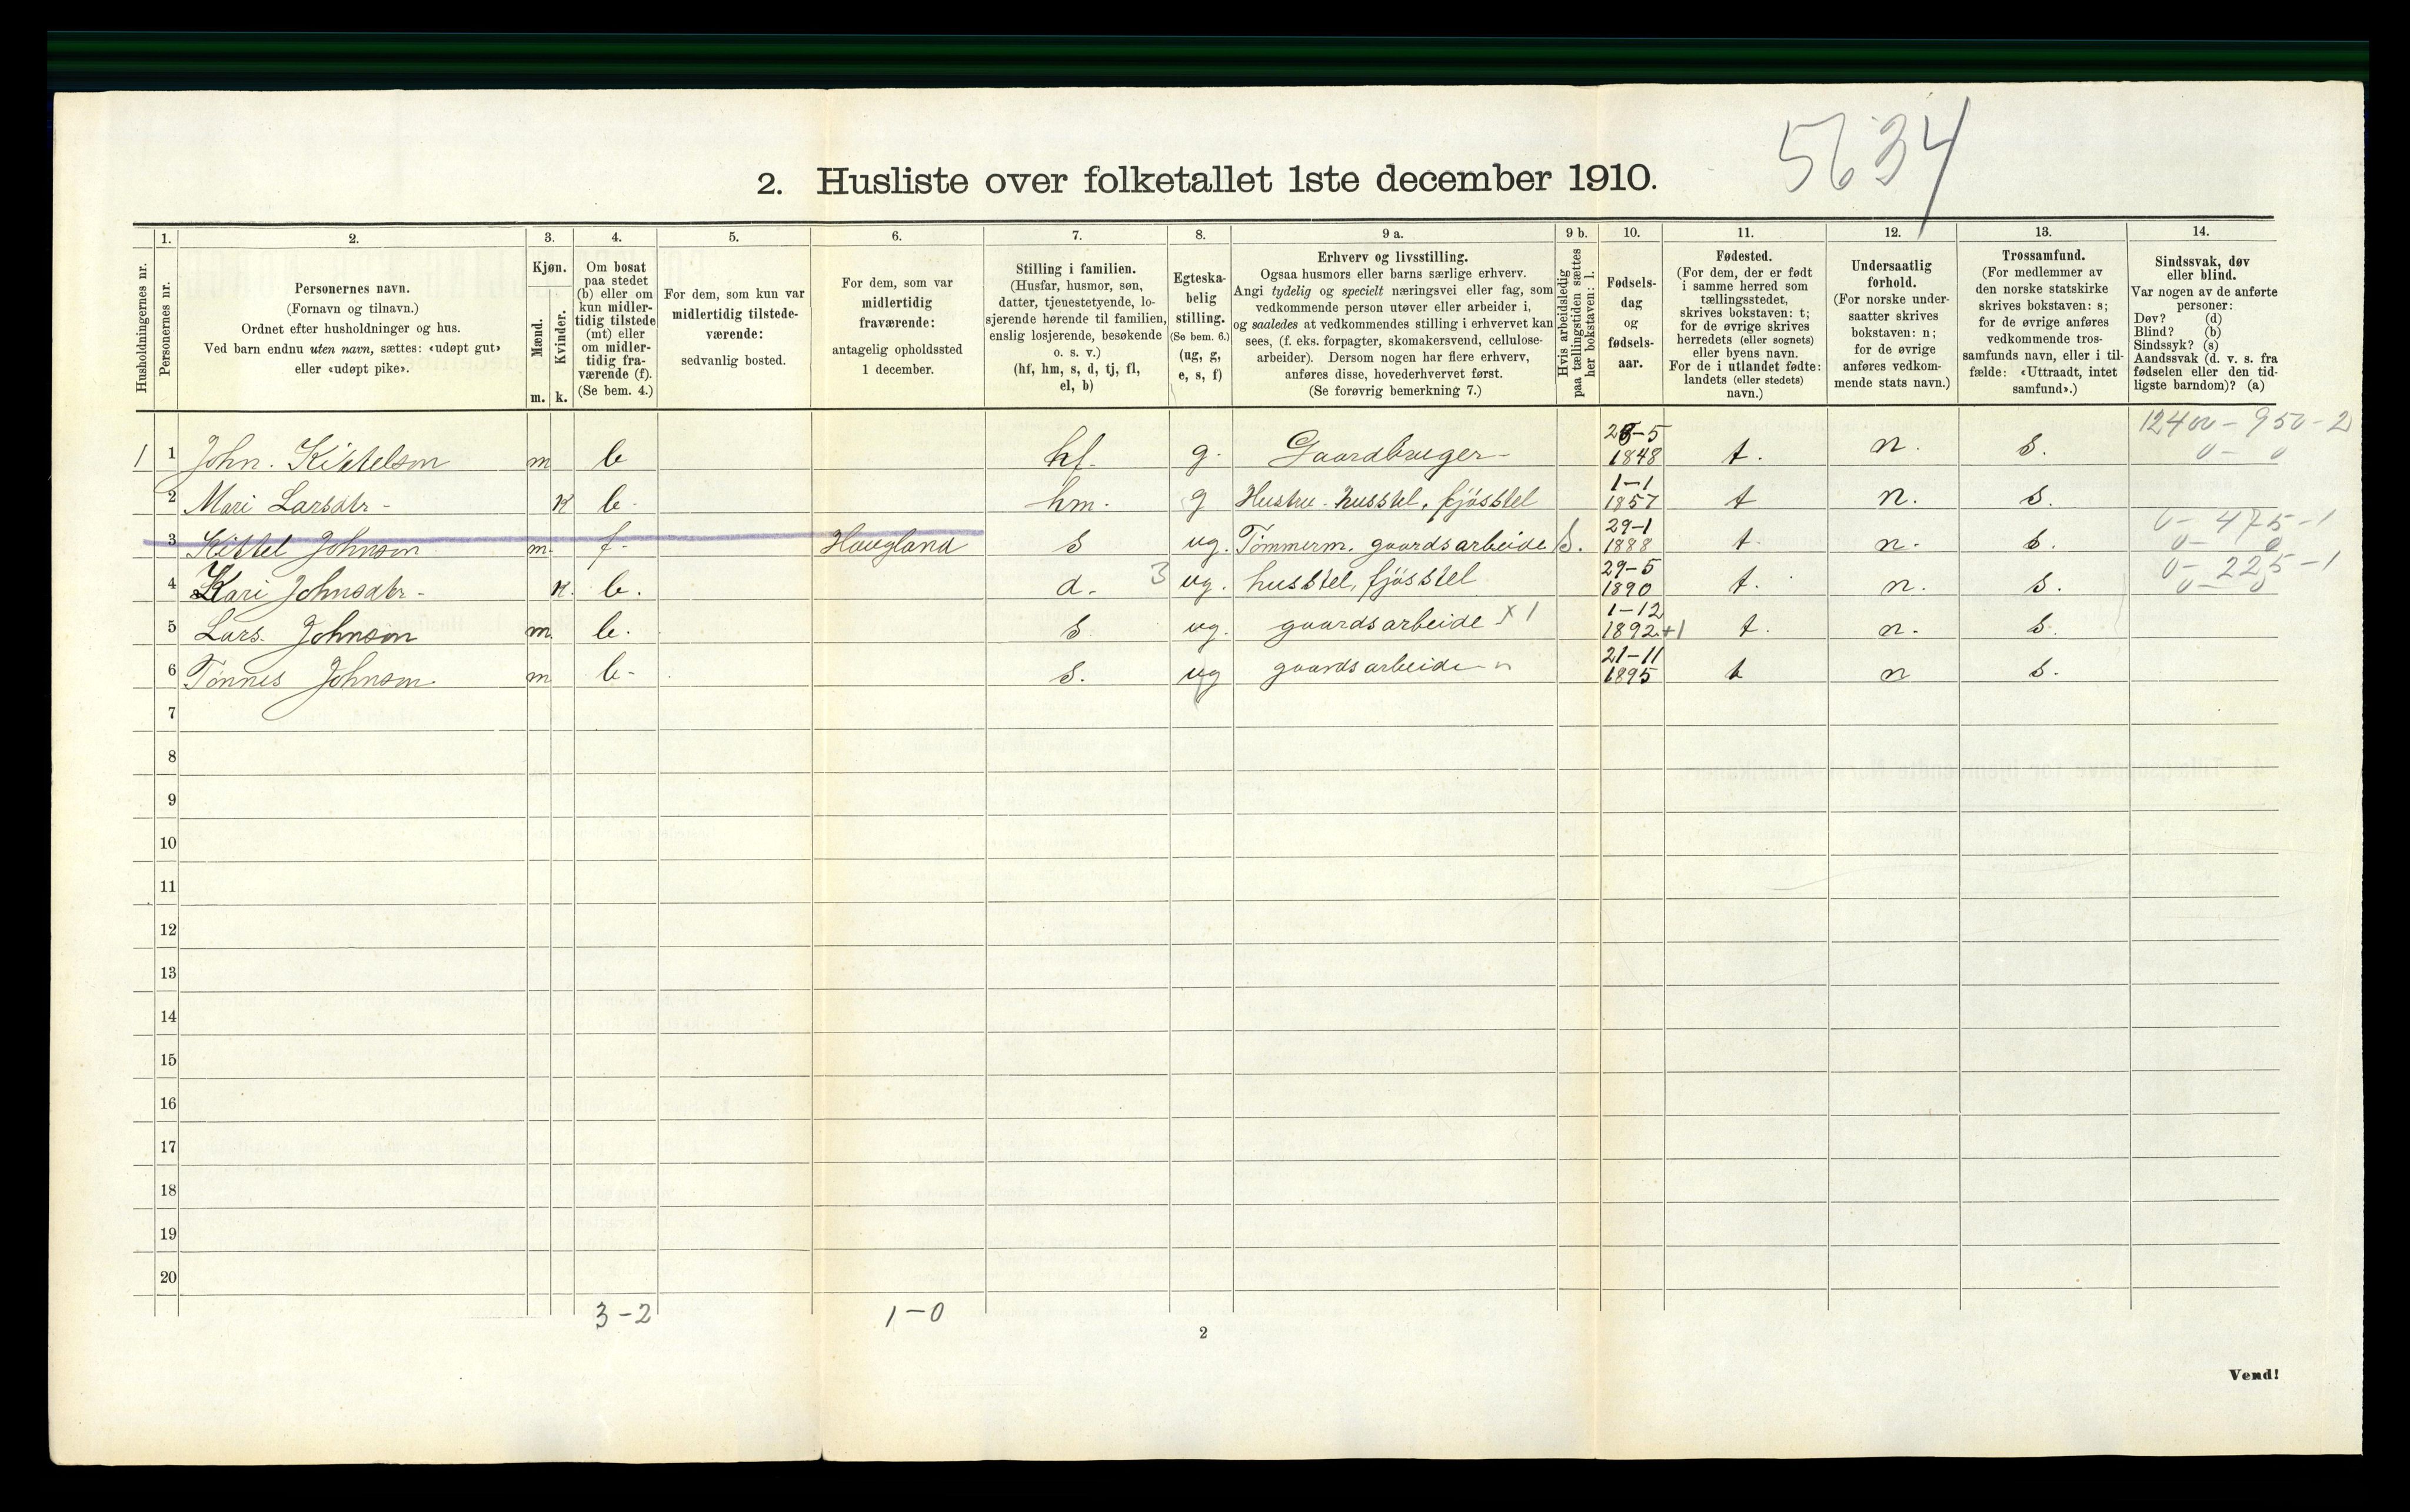 5634
2. Husliste over folketallet 1ste december 1910.
Husholdningernes nr.
1.
Personernes nr.
2.
Personernes navn.
(Fornavn og tilnavn.)
Ordnet efter husholdninger og hus.
Ved barn endnu uten navn, sættes: «udøpt gut»
eller «udøpt pike».
3.
Kjøn.
Mænd.
Kvinder.
m. k.
4.
Om bosat
paa stedet
(b) eller om
kun midler-
tidig tilstede
(mt) eller
om midler-
tidig fra-
værende (f).
(Se bem. 4.)
5.
For dem, som kun var
midlertidig tilstede-
værende:
sedvanlig bosted.
6.
For dem, som var
midlertidig
fraværende:
antagelig opholdssted
1 december.
7.
Stilling i familien.
(Husfar, husmor, søn,
datter, tjenestetyende, lo-
sjerende hørende til familien,
enslig losjerende, besøkende
o. s. v.)
(hf, hm, s, d, tj, fl,
el, b)
8.
Egteska-
belig
stilling.
(Se bem. 6.)
(ug, g,
e, s, f)
9 a.
Erhverv og livsstilling.
Ogsaa husmors eller barns særlige erhverv.
Angi tydelig og specielt næringsvei eller fag, som
vedkommende person utøver eller arbeider i,
og saaledes at vedkommendes stilling i erhvervet kan
sees, (f. eks. forpagter, skomakersvend, cellulose-
arbeider). Dersom nogen har flere erhverv,
anføres disse, hovederhvervet først.
(Se forøvrig bemerkning 7.)
9 b.
Hvis arbeidsledig
paa tællingstiden sættes
her bokstaven: l.
10.
Fødsels-
dag
og
fødsels-
aar.
11.
Fødested.
(For dem, der er født
i samme herred som
tællingsstedet,
skrives bokstaven: t;
for de øvrige skrives
herredets (eller sognets)
eller byens navn.
For de i utlandet fødte:
landets (eller stedets)
navn.)
12.
Undersaatlig
forhold.
(For norske under-
saatter skrives
bokstaven: n;
for de øvrige
anføres vedkom-
mende stats navn.)
13.
Trossamfund.
(For medlemmer av
den norske statskirke
skrives bokstaven: s;
for de øvrige anføres
vedkommende tros-
samfunds navn, eller i til-
fælde: «Uttraadt, intet
samfund».)
14.
Sindssvak, døv
eller blind.
Var nogen av de anførte
personer:
Døv? (d)
Blind? (b)
Sindssyk? (s)
Aandssvak (d. v. s. fra
fødselen eller den tid-
ligste barndom)? (a)
1 1 John. Kittelson m b hf. g. Gaardbruger- 28-5 1848 t. n. s. 12400-950-2 0-0
2 Mari Larsdtr- k b- hm. g Hustru. husstel, fjösstel 1-1 1857 t n. s.
3 Kittel Johnson m. f- Haugland s ug. Tömmerm. gaardsarbeide 29-1 1888 t. n. s. 0-475-1 0-0
4 Kari Johnsdtr- k. b. d. 3 ug. husstel, fjösstel 29-5 1890 t. n. s. 0-225-1 0-0
5 Lars. Johnson m. b. s ug. gaardsarbeide x1 1-12 1892+1 t. n. s.
6 Tönnes Johnson. m b- s. ug gaardsarbeide 21-11 1895 t n s.
7
8
9
10
11
12
13
14
15
16
17
18
19
20
3-2 1-0
2
Vend!